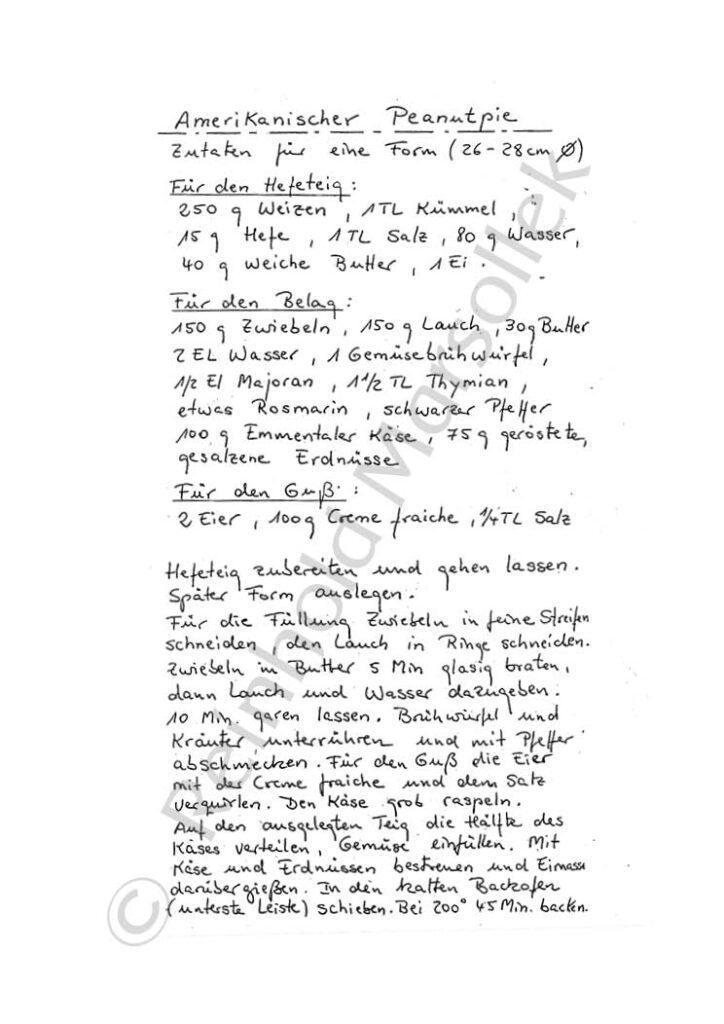 Amerikanischer Peanutpie
Zutaten für eine Form (26-28cm Ø)
Für den Hefeteig:
250 g Weizen, 1TL Kümmel,
15 g Hefe, 1 TL Salz, 80 g Wasser,
40 g weiche Butter, 1 Ei.
Für den Belag:
150 g Zwiebeln, 150 g Lauch, 30g Butter
2 EL Wasser, 1 Gemüsebrühwürfel,
1/2 El Majoran, 1 1/2 TL Thymian,
etwas Rosmarin, schwarzer Pfeffer
100 g Emmentaler Käse, 75 g geröstete,
gesalzene Erdnüsse
Für den Guß:
2 Eier, 100g Creme fraiche, 1/4 TL Salz
Hefeteig zubereiten und gehen lassen.
Später Form auslegen.
Für die Füllung Zwiebeln in feine Streifen
schneiden, den Lauch in Ringe schneiden.
Zwiebeln in Butter 5 Min glasig braten,
dann Lauch und Wasser dazugeben.
10 Min. garen lassen. Brühwürfel und
Kräuter unterrühren und mit Pfeffer
abschmecken. Für den Guß die Eier
mit der Creme fraiche und dem Salz
verquirlen. Den Käse grob raspeln.
Auf den ausgelegten Teig die Hälfte des
Käses verteilen, Gemüse einfüllen. Mit
Käse und Erdnüssen bestreuen und Eimasse
darübergießen. In den kalten Backofen
(unterste Leiste) schieben. Bei 200° 45 Min. backen.
© Reinhold Marsollek